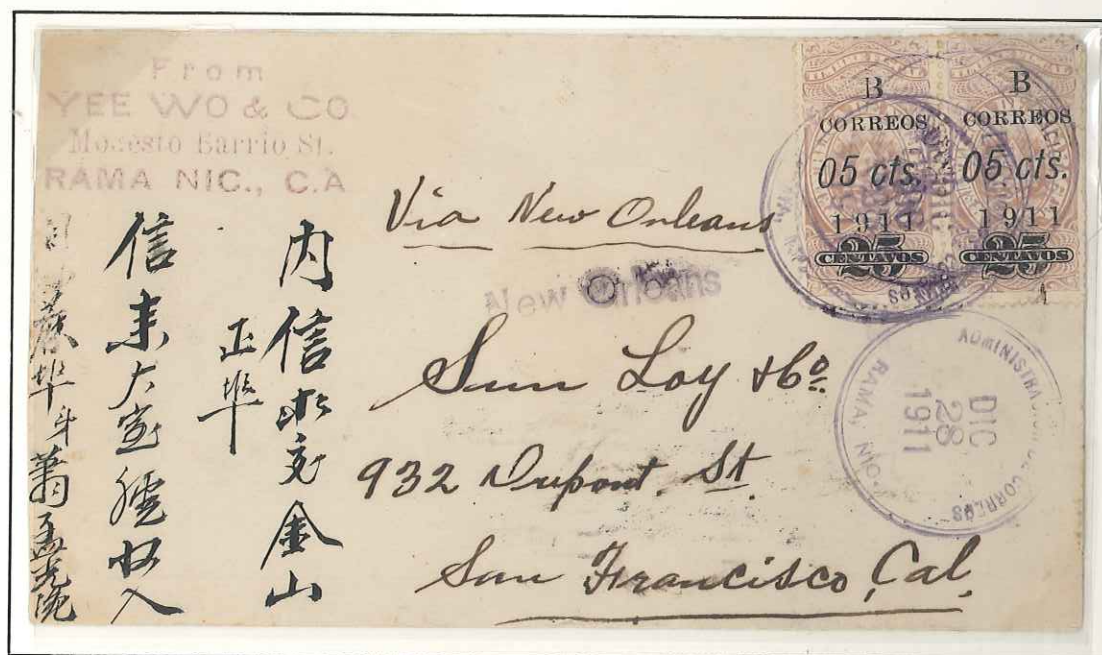 From
YEE WO & CO
Modesto Barrio St.
RAMA NIC., C.A
B
CORREOS
05 cts.
1911
25
CENTAVOS
B
CORREOS
05 cts.
1911
25
CENTAVOS
Via New Orleans
New Orleans
Sun Loy & Co.
932 Dupont. St.
San Francisco, Cal.
ADMINISTRACION DE CORREOS
DIC
28
1911
RAMA, NIC.
內信祈交金山
正埠
信末大寶號收入
埠付